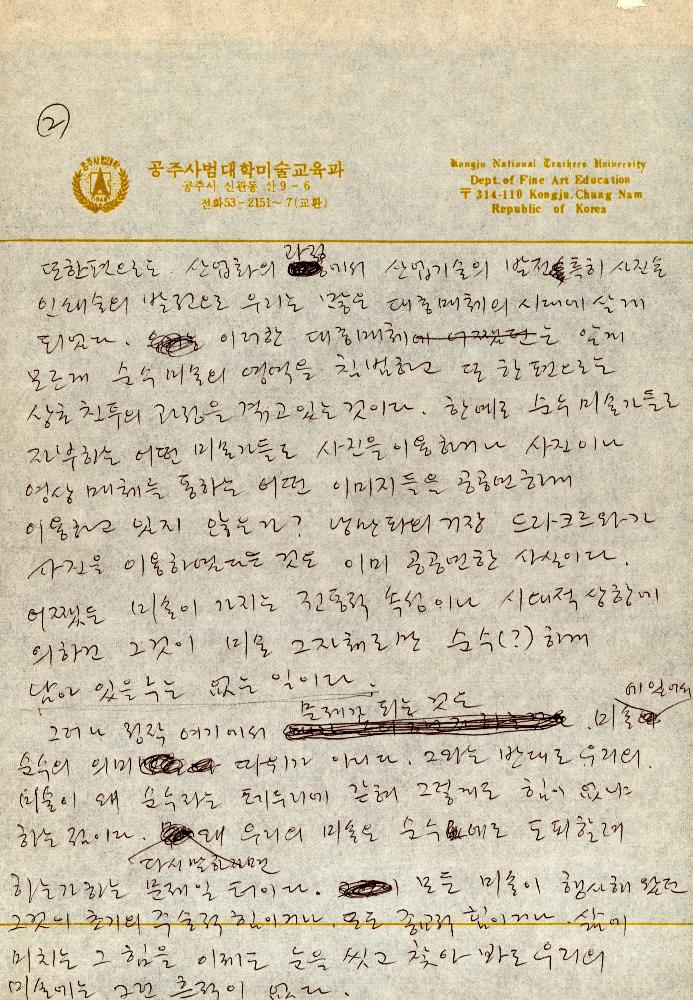 ②
공주사범대학미술교육과
공주시 신관동 산9-6
전화53-2151~7(교환)
Kongju National Teachers University
Dept. of Fine Art Education
〒314-110 Kongju. Chung Nam
Republic of Korea
과정
또한편으로는 산업화의 에서 산업기술의 발전 특히 사진술
인쇄술의 발전으로 우리는 많은 대중매체의 시대에 살게
되었다. 이러한 대중매체는 알게
모르게 순수미술의 영역을 침범하고 또 한편으로는
상호침투의 과정을 겪고있는 것이다. 한예로 순수미술가들로
자부하는 어떤 미술가들도 사진을 이용하거나 사진이나
영상매체를 통하는 어떤 이미지들을 공공연하게
이용하고 있지 않는가? 낭만파의 거장 드라크르와가
사진을 이용하였다는 것도 이미 공공연한 사실이다.
어쨌든 미술이 가지는 전통적 속성이나 시대적 상황에
의하건 그것이 미술 그자체로만 순수(?)하게
남아 있을수는 없는 일이다.
문제가 되는 것은
그러나 정작 여기에서 미술에 있어서
순수의 의미 따위가 아니다. 그와는 반대로 우리의
미술이 왜 순수라는 테두리에 갇혀 그렇게도 힘이 없냐
하는 점이다. 왜 우리의 미술은 순수에로 도피할려
다시말하자면
하는가하는 문제일 터이다. 모든 미술이 행사해 왔던
그것이 초기의 주술적 힘이거나 또는 종교적 힘이거나 삶에
미치는 그 힘을 이제는 눈을 씻고 찾아 봐도 우리의
미술에는 그런 흔적이 없다.